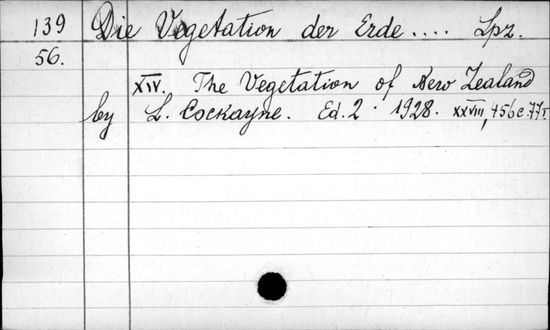 139 Die Vegetation der Erde .... Lpz.
56.
XIV. The Vegetation of New Zealand
by L. Cockayne. Ed. 2. 1928. XXVIII, 456 c. 77 т.